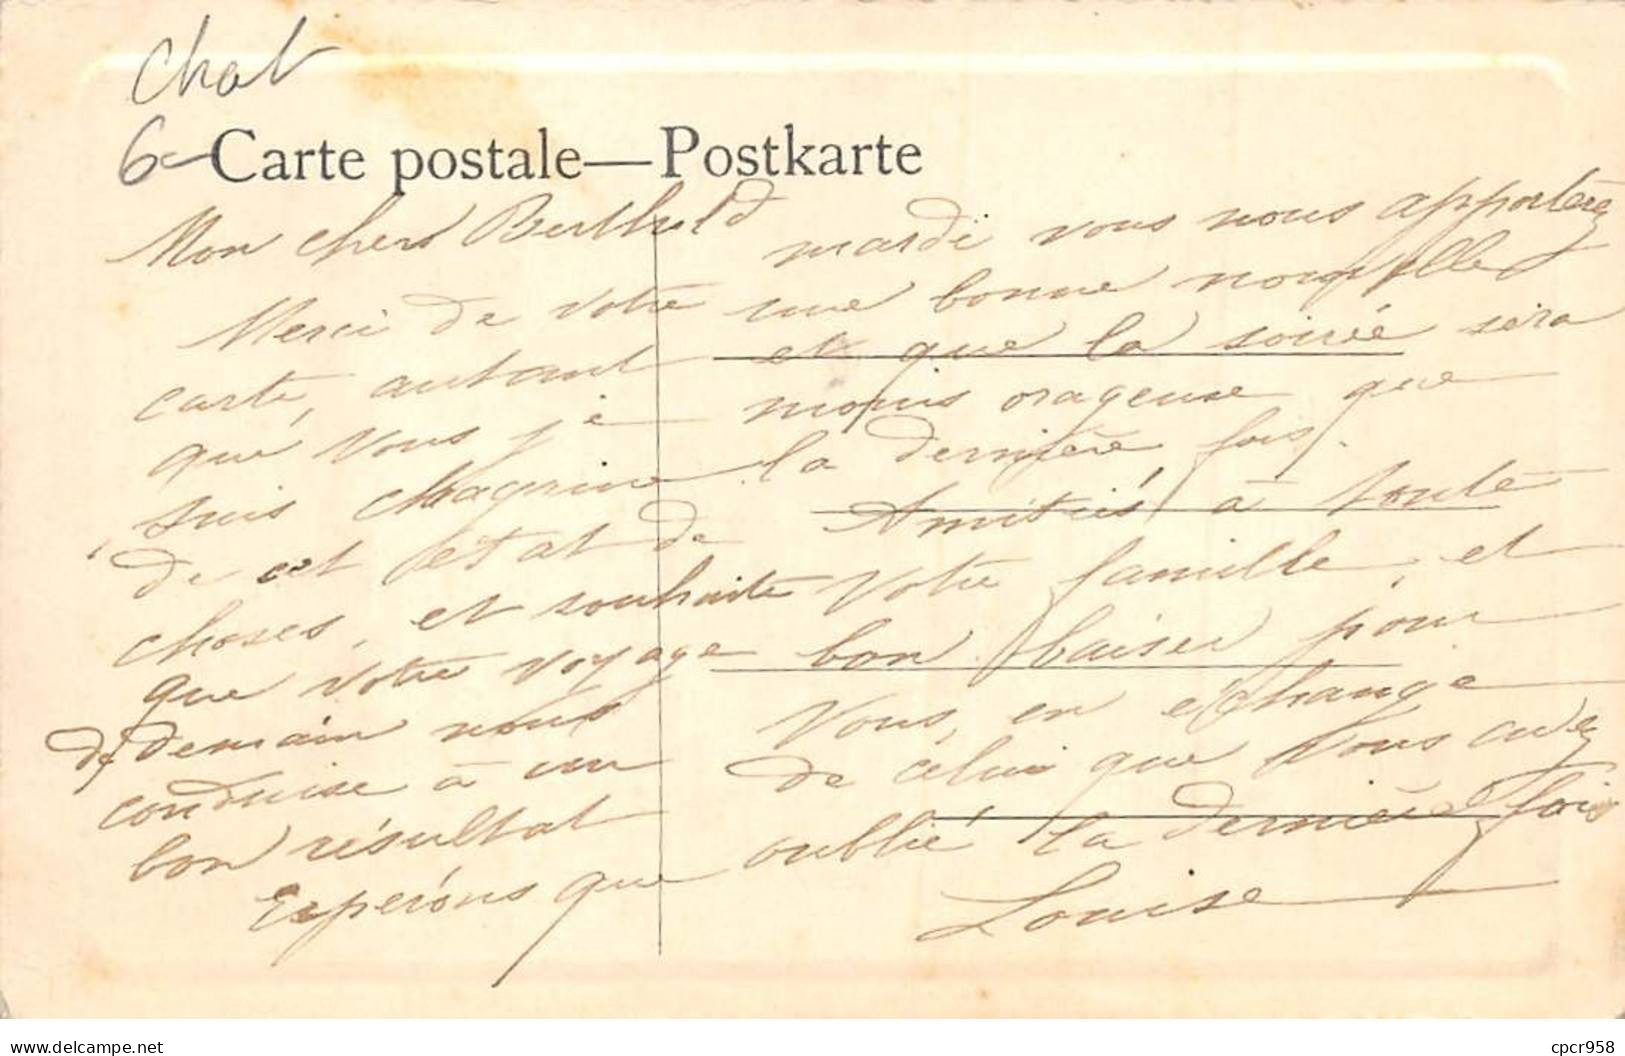 Chat
6-
Carte postale—Postkarte
Mon cher Berthold
Merci de votre
carte, autant
que vous je
suis chagrine
de cet état de
choses, et souhaite
que votre voyage
de demain nous
conduise à un
bon résultat
Espérons que
mardi vous nous apporterez
une bonne nouvelle
et que la soirée sera
moins orageuse que
la dernière fois.
Amitiés à toute
votre famille, et
bon baiser pour
Vous, en echange
de célui que vous avez
oublié la dernière fois
Louise
Delcampe.net
cpcr958